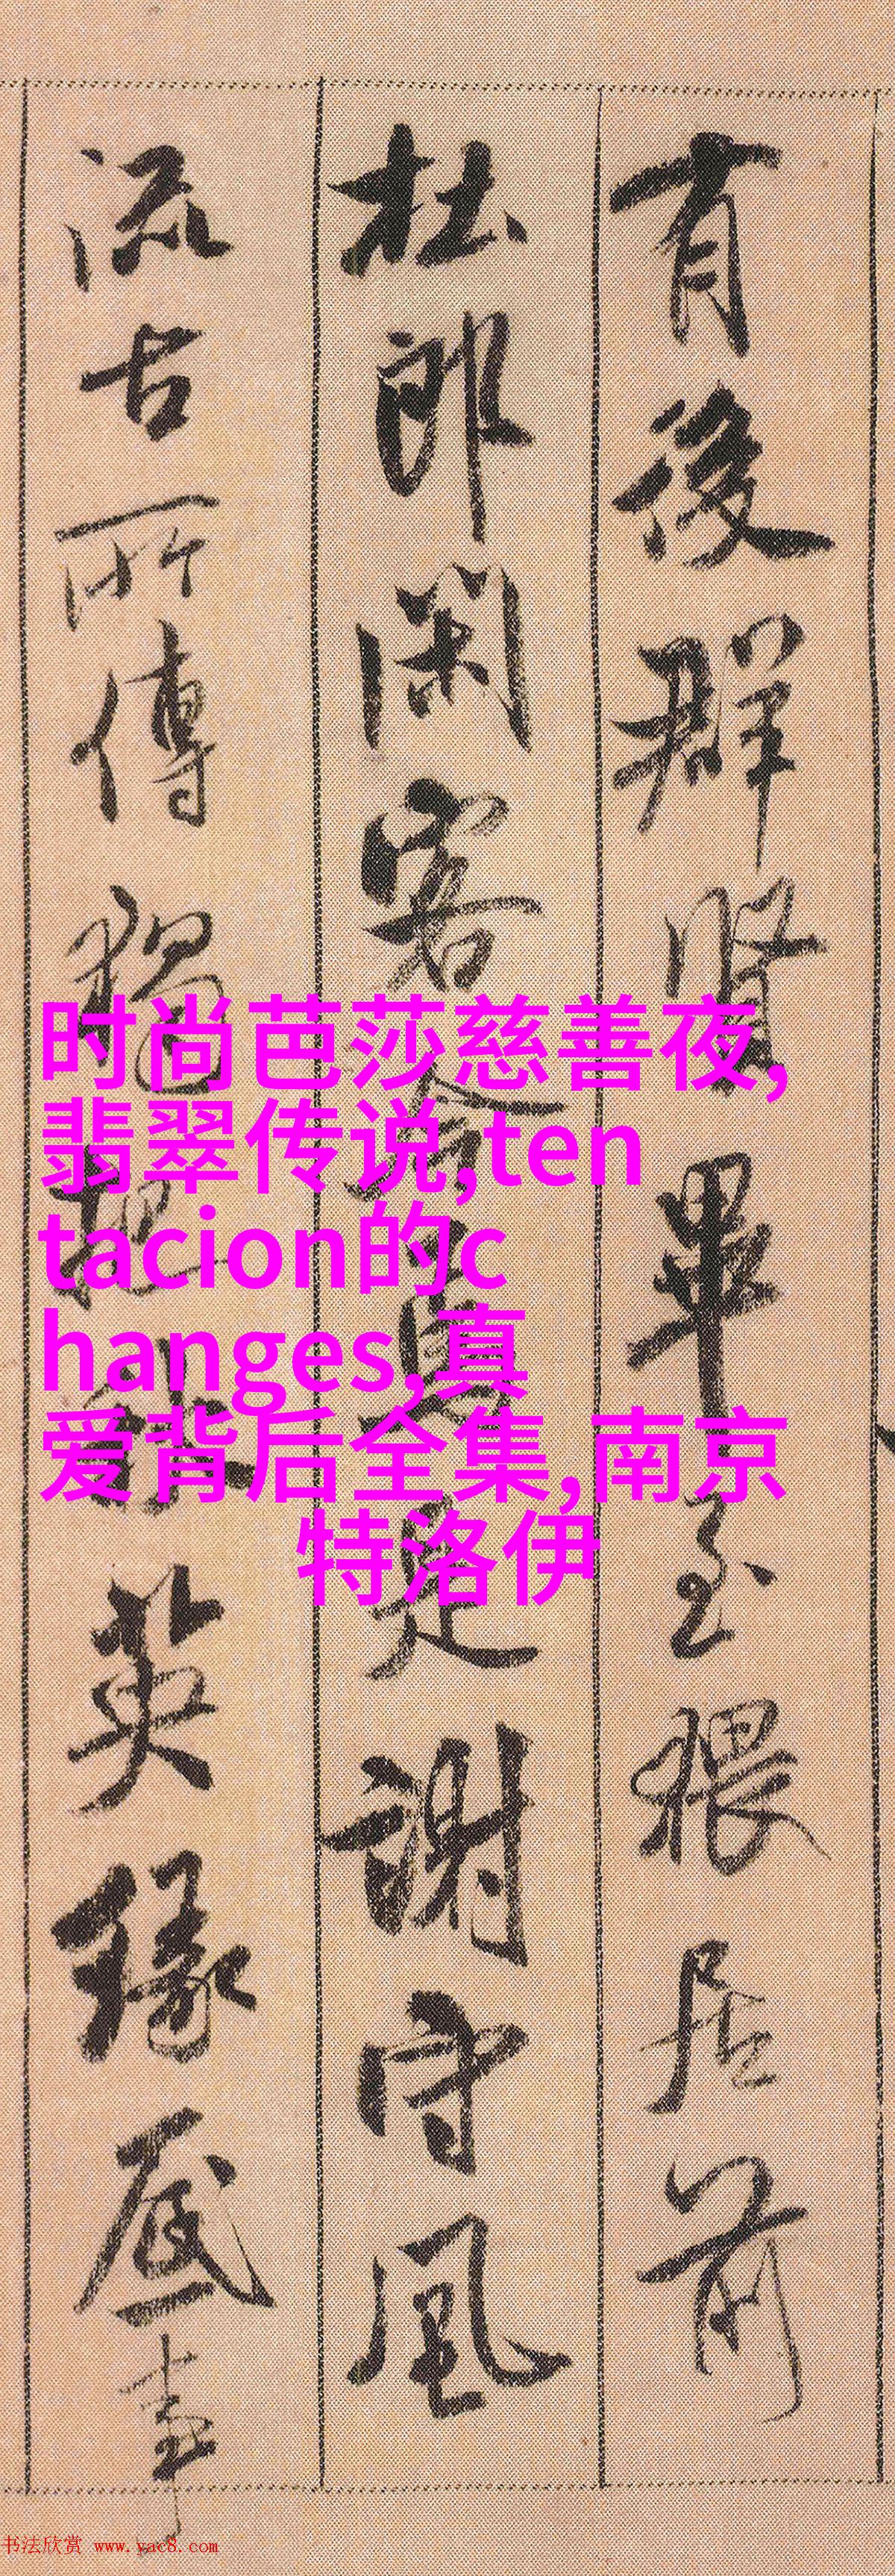 有後群賢畢至猥居前
杜郎闲客會具是謝守風
流古所傳獨把秋英緣底事
时尚芭莎慈善夜,
翡翠传说,ten
tacion的c
hanges,真
爱背后全集,南京
特洛伊
书法欣赏 www.yac8.com